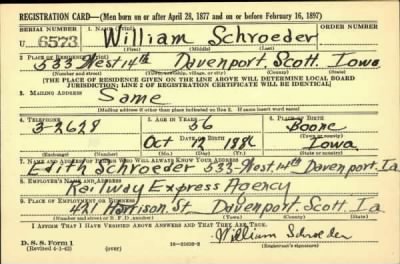 REGISTRATION CARD—(Men born on or after April 28, 1877 and on or before February 16, 1897)
SERIAL NUMBER 1. NAME (Print) ORDER NUMBER
U 6573 William Schroeder
(First) (Middle) (Last)
2. PLACE OF RESIDENCE (Print)
533 West 14th Davenport, Scott, Iowa
(Number and street) (Town, township, village, or city) (County) (State)
[THE PLACE OF RESIDENCE GIVEN ON THE LINE ABOVE WILL DETERMINE LOCAL BOARD
JURISDICTION; LINE 2 OF REGISTRATION CERTIFICATE WILL BE IDENTICAL]
3. MAILING ADDRESS
Same
[Mailing address if other than place indicated on line 2. If same insert word same]
4. TELEPHONE 5. AGE IN YEARS 6. PLACE OF BIRTH
3-2628 56 Boone
DATE OF BIRTH (Town or county)
Oct 12 1886 Iowa
(Exchange) (Number) (Mo.) (Day) (Yr.) (State or country)
7. NAME AND ADDRESS OF PERSON WHO WILL ALWAYS KNOW YOUR ADDRESS
Edith Schroeder 533 West 14th Davenport, Ia
8. EMPLOYER'S NAME AND ADDRESS
Railway Express Agency
9. PLACE OF EMPLOYMENT OR BUSINESS
421 Harrison St Davenport, Scott, Ia
(Number and street or R. F. D. number) (Town) (County) (State)
I AFFIRM THAT I HAVE VERIFIED ABOVE ANSWERS AND THAT THEY ARE TRUE.
D. S. S. Form 1 William Schroeder
(Revised 4-1-42) (over) (Registrant's signature)